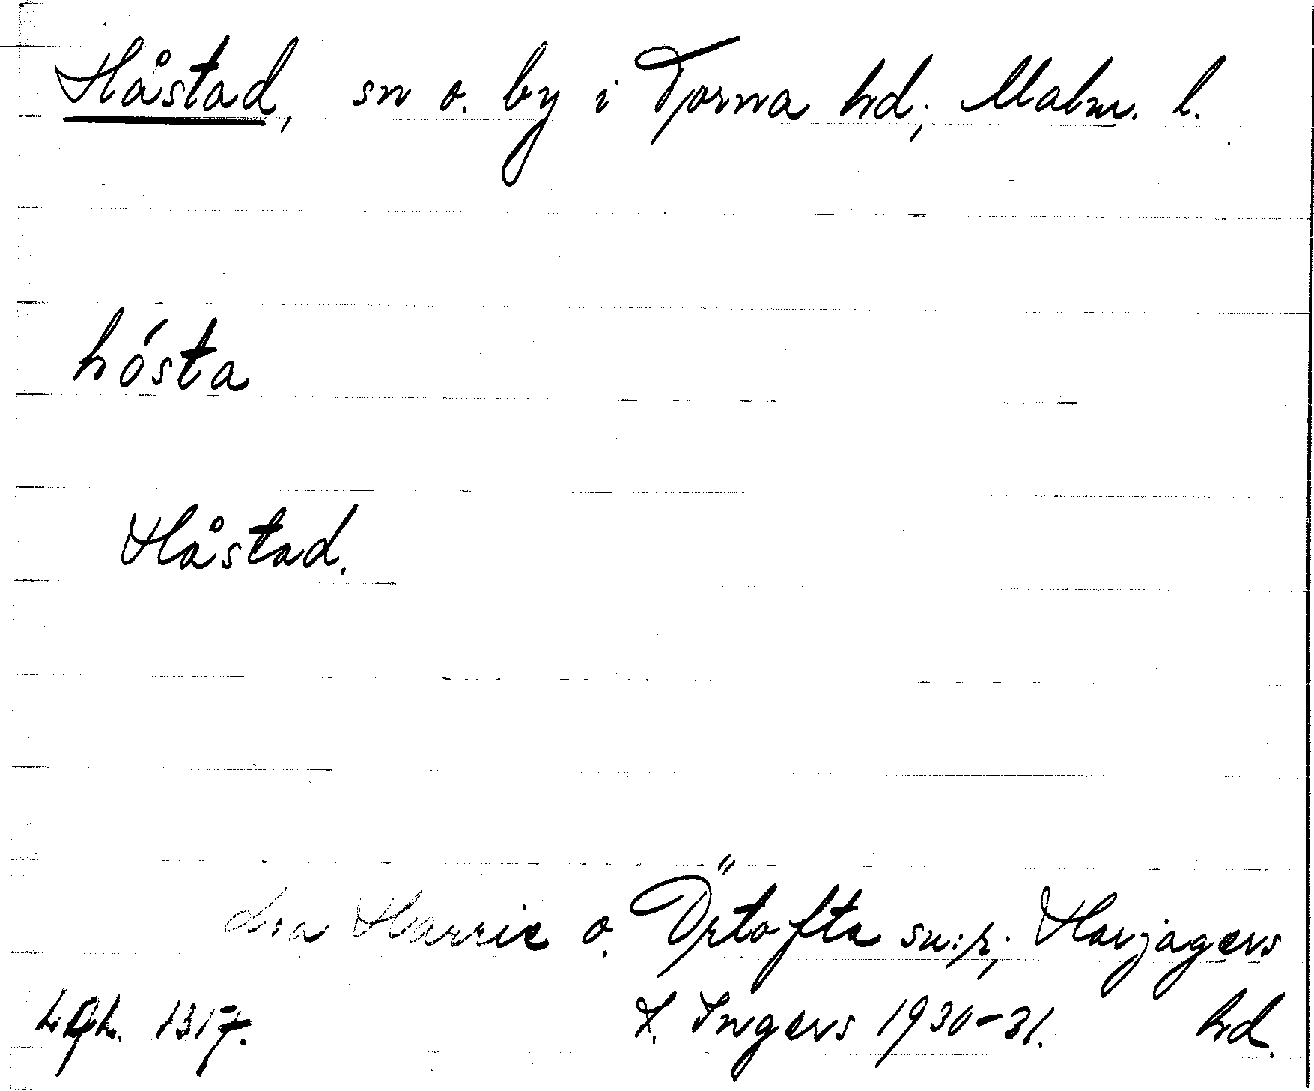 Håstad, sn o. by i Torna hd, Malm. l.
hósta
Håstad.
Lra Harrie o. Örtofta sn:r, Harjagers
hd
I. Ingers 1930-31.